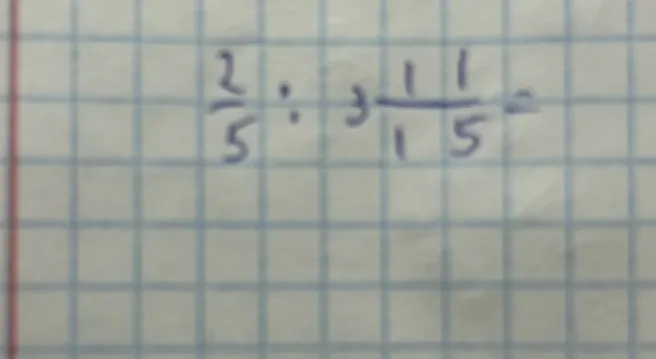 2/5 : 3 11/15 =